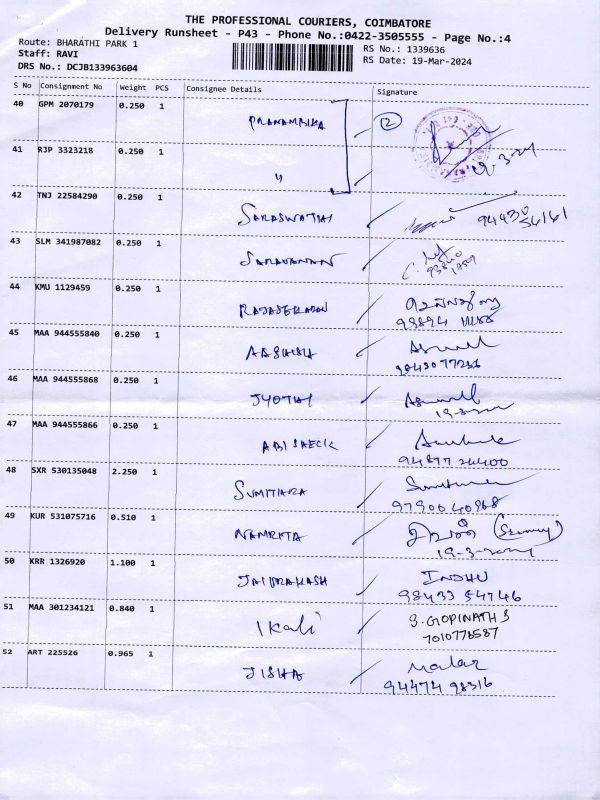 THE PROFESSIONAL COURIERS, COIMBATORE
Delivery Runsheet - P43 - Phone No.:0422-3505555 - Page No.:4
Route: BHARATHI PARK 1
RS No.: 1339636
Staff: RAVI
RS Date: 19-Mar-2024
DRS No.: DCJB133963604
S No Consignment No Weight PCS Consignee Details Signature
40 GPM 2070179 0.250 1 PRANAMBIKA 2
41 RJP 3323218 0.250 1 " 19-3-24
42 TNJ 22584290 0.250 1 SARASWATHI 94430
56161
43 SLM 341987082 0.250 1 SARAVANAN
44 KMU 1129459 0.250 1 RAJASEKARAN
45 MAA 944555840 0.250 1 ABSHISH
46 MAA 944555868 0.250 1 JYOTHI
47 MAA 944555866 0.250 1 ABISHECK
94877 26400
48 SXR 530135048 2.250 1 SUMITHRA
9790040968
49 KUR 531075716 0.510 1 NAMRITA
19-3-2024
50 KRR 1326920 1.100 1 JAIPRAKASH INDHU
98433 54746
51 MAA 301234121 0.840 1 Ikali S. GOPINATH S
7010776587
52 ART 225526 0.965 1 JISHA Malar
94474 98316